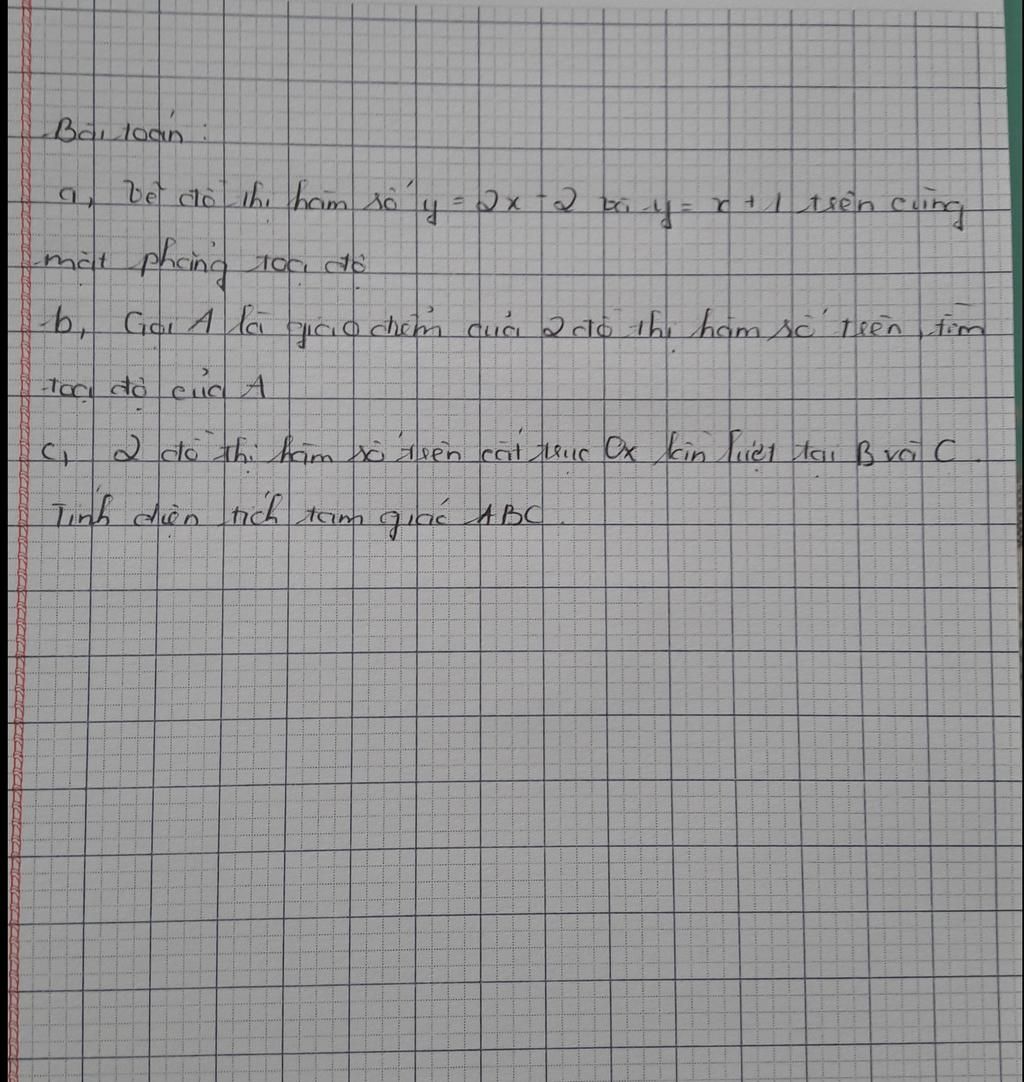 Bài toán :
a, Vẽ đồ thị hàm số y = 2x - 2 và y = x + 1 trên cùng
một phẳng toạ độ
b, Gọi A là giao chểm của 2 đồ thị hàm số trên, tìm
toạ độ của A
c, 2 đồ thị hàm số trên cắt trục Ox lần lượt tại B và C.
Tính diện tích tam giác ABC.